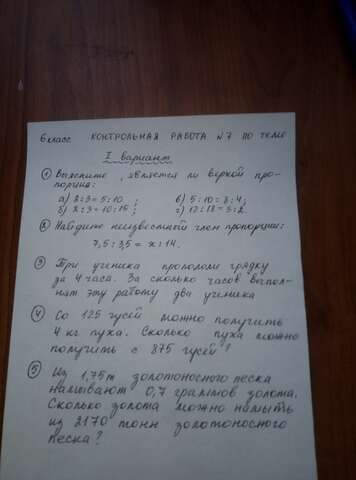 6 класс КОНТРОЛЬНАЯ РАБОТА №7 ПО ТЕМЕ
I вариант
① Выясните, является ли верной про-
порция:
а) 2:3 = 5:10 ; в) 5:10 = 8:4;
б) 2:3 = 10:15 ; г) 12:18 = 3:2.
② Найдите неизвестный член пропорции:
7,5 : 3,5 = x : 14.
③ Три ученика пропололи грядку
за 4 часа. За сколько часов выпол-
нят эту работу два ученика
④ Со 125 гусей можно получить
4 кг пуха. Сколько пуха можно
получить с 875 гусей?
⑤ Из 1,75 т золотоносного песка
намывают 0,7 граммов золота.
Сколько золота можно намыть
из 2170 тонн золотоносного
песка?